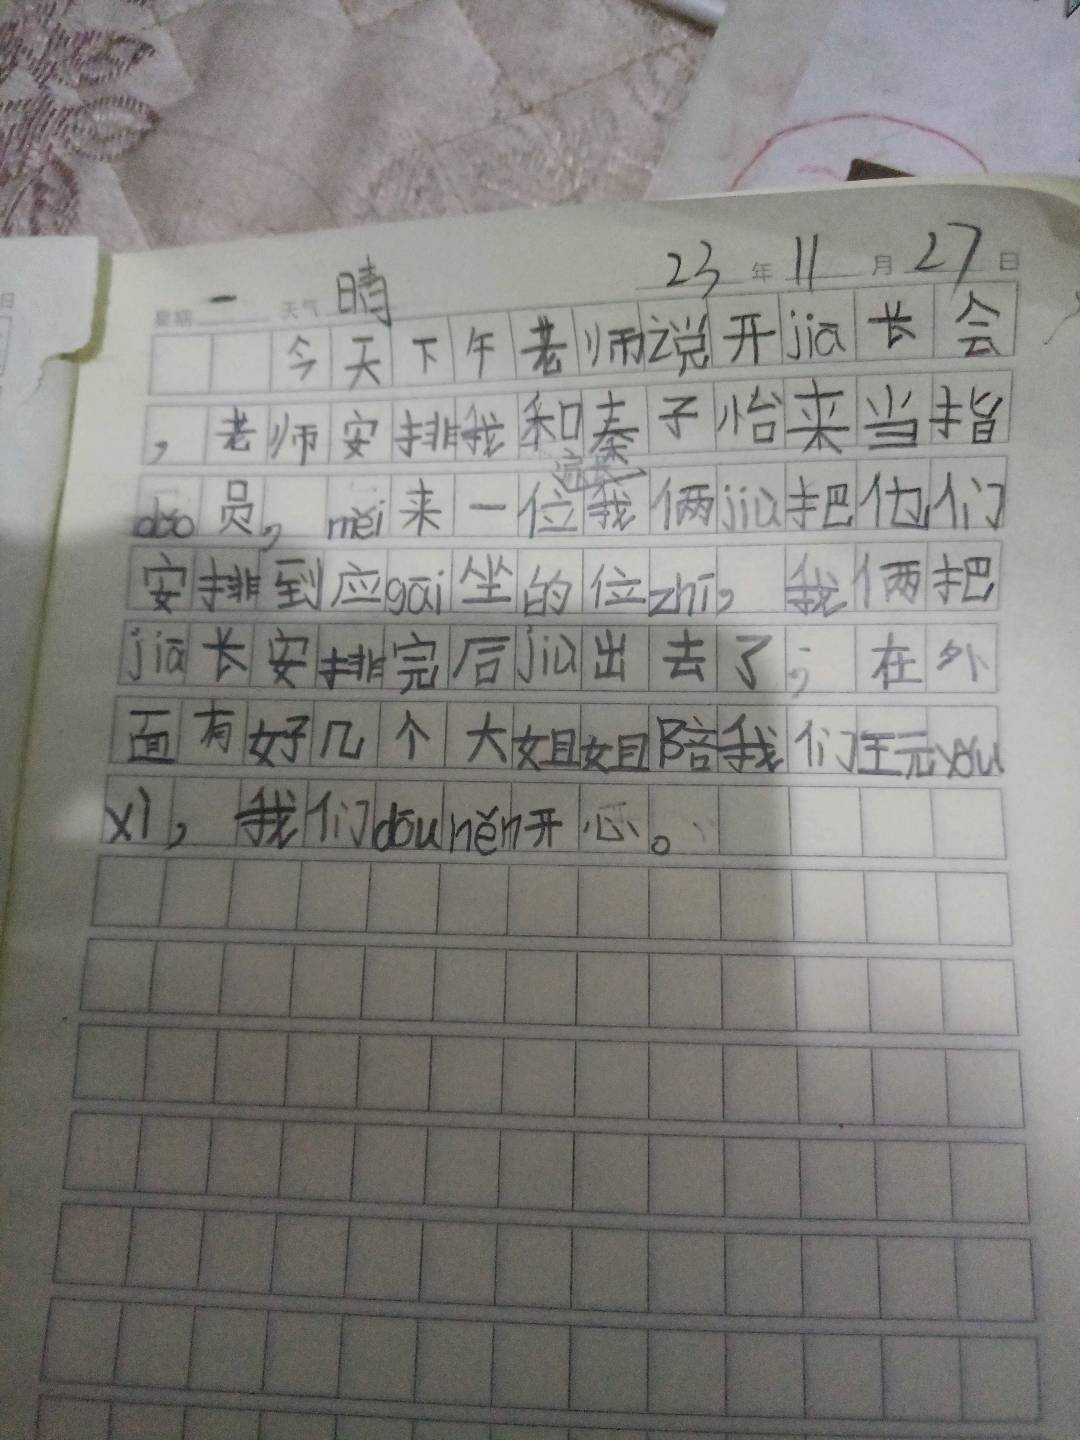 星期 一 天气 晴 23 年 11 月 27 日
今天下午老师说开jiā长会
，老师安排我和秦子怡来当指
dǎo员，měi来一位我俩jiù把他们
安排到应gāi坐的位zhī，我俩把
jiā长安排完后jiù出去了；在外
面有好几个大姐姐陪我们玩yóu
xì，我们dōuhěn开心。